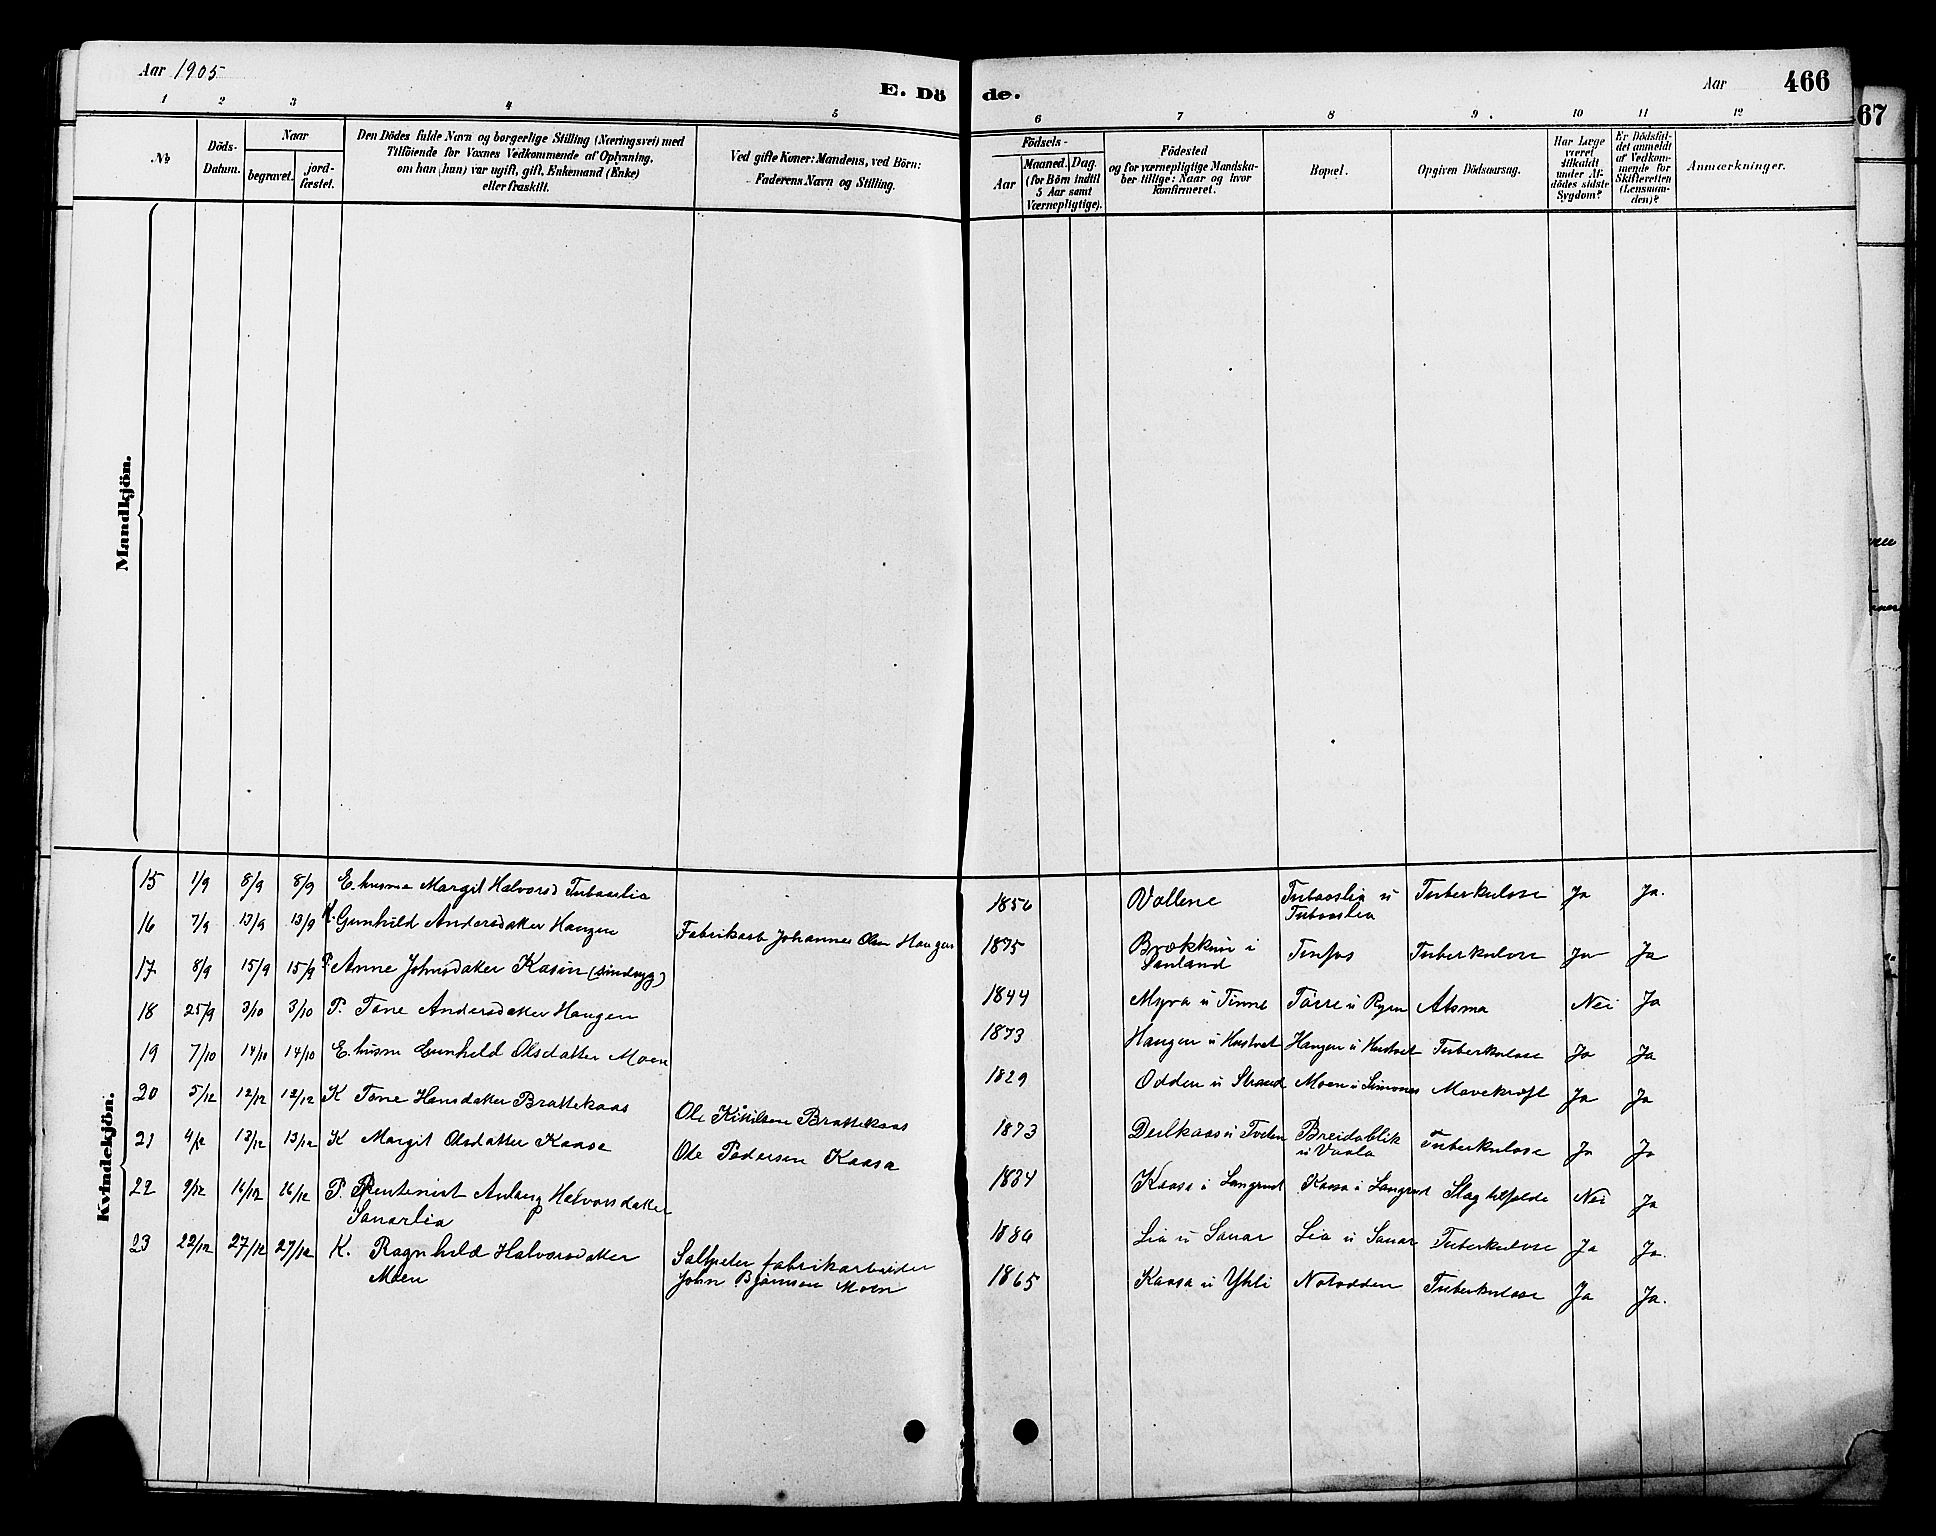 Aar 1905
E. Dö de.
Aar 466
67
1 2 3 4 5 6 7 8 9 10 11 12
No
Döds-Datum.
Naar
begravet.
jord-fæstet.
Den Dödes fulde Navn og borgerlige Stilling (Næringsvei) med
Tilföiende for Voxnes Vedkommende af Oplysning,
om han (hun) var ugift, gift, Enkemand (Enke)
eller fraskilt.
Ved gifte Koner: Mandens, ved Börn:
Faderens Navn og Stilling.
Födsels-
Aar
Maaned. Dag.
(for Börn indtil
5 Aar samt
Værnepligtige).
Födested
og for værnepligtige Mandska-
ber tillige: Naar og hvor
konfirmeret.
Bopæl.
Opgiven Dödsaarsag.
Har Læge
været
tilkaldt
under Af-
dödes sidste
Sygdom?
Er Dödsfal-
det anmeldt
af Vedkom-
mende for
Skifteretten
(Lensman-
den)?
Anmærkninger.
Mandkjön.
Kvindekjön.
15 1/9 8/9 8/9 E. husmo Margit Halvorsd Tubaaslia 1856 Vallene Tubaaslia u Tuberkulose Ja Ja.
Tubaaslia
16 7/9 13/9 13/9 K. Gunhild Andersdatter Haugen Fabrikarb Johannes Olsen Haugen 1875 Brækkun i Tinfos Tuberkulose Ja Ja
Sauland
17 8/9 15/9 15/9 P. Anne Johnsdatter Kasin (sindsyg) 1844 Myra u Tinne Astma Nei Ja
18 25/9 3/10 3/10 P. Tone Andersdatter Haugen 1873 Haugen u Haugen u Tuberkulose Ja Ja
19 7/10 14/10 14/10 E. husm Gunhild Olsdatter Moen 1829 Odden u Strand Moen u Semones Mavekræft Ja Ja
20 5/12 12/12 12/12 K Tone Hansdatter Brattekaas Ole Kittilsen Brattekaas 1873 Breidablik Tuberkulose Ja Ja
21 4/12 13/12 13/12 K Margit Olsdatter Kaasa Ole Pedersen Kaasa 1834 Kaasa i Kaasa i Slagtilfælde Nei Ja
22 9/12 16/12 16/12 P. Halvorsdatter 1886 Lia u Sanar Lia u Sanar Tuberkulose Ja Ja.
Sanarlia
23 22/12 27/12 27/12 K. Ragnhild Halvorsdatter Salpeter fabrikarbeider 1865 Kaasa u Yhli Notodden Tuberkulose Ja Ja.
Moen John Bjørnsen Moen